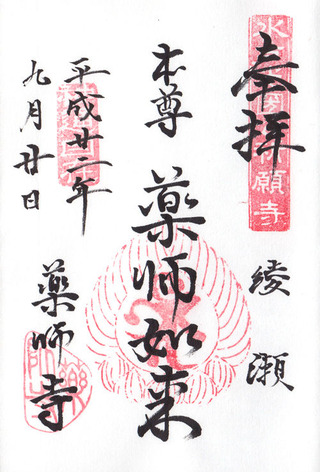 奉拝
綾瀬
本尊
薬師如来
平成廿二年
九月廿日
薬師寺
願寺